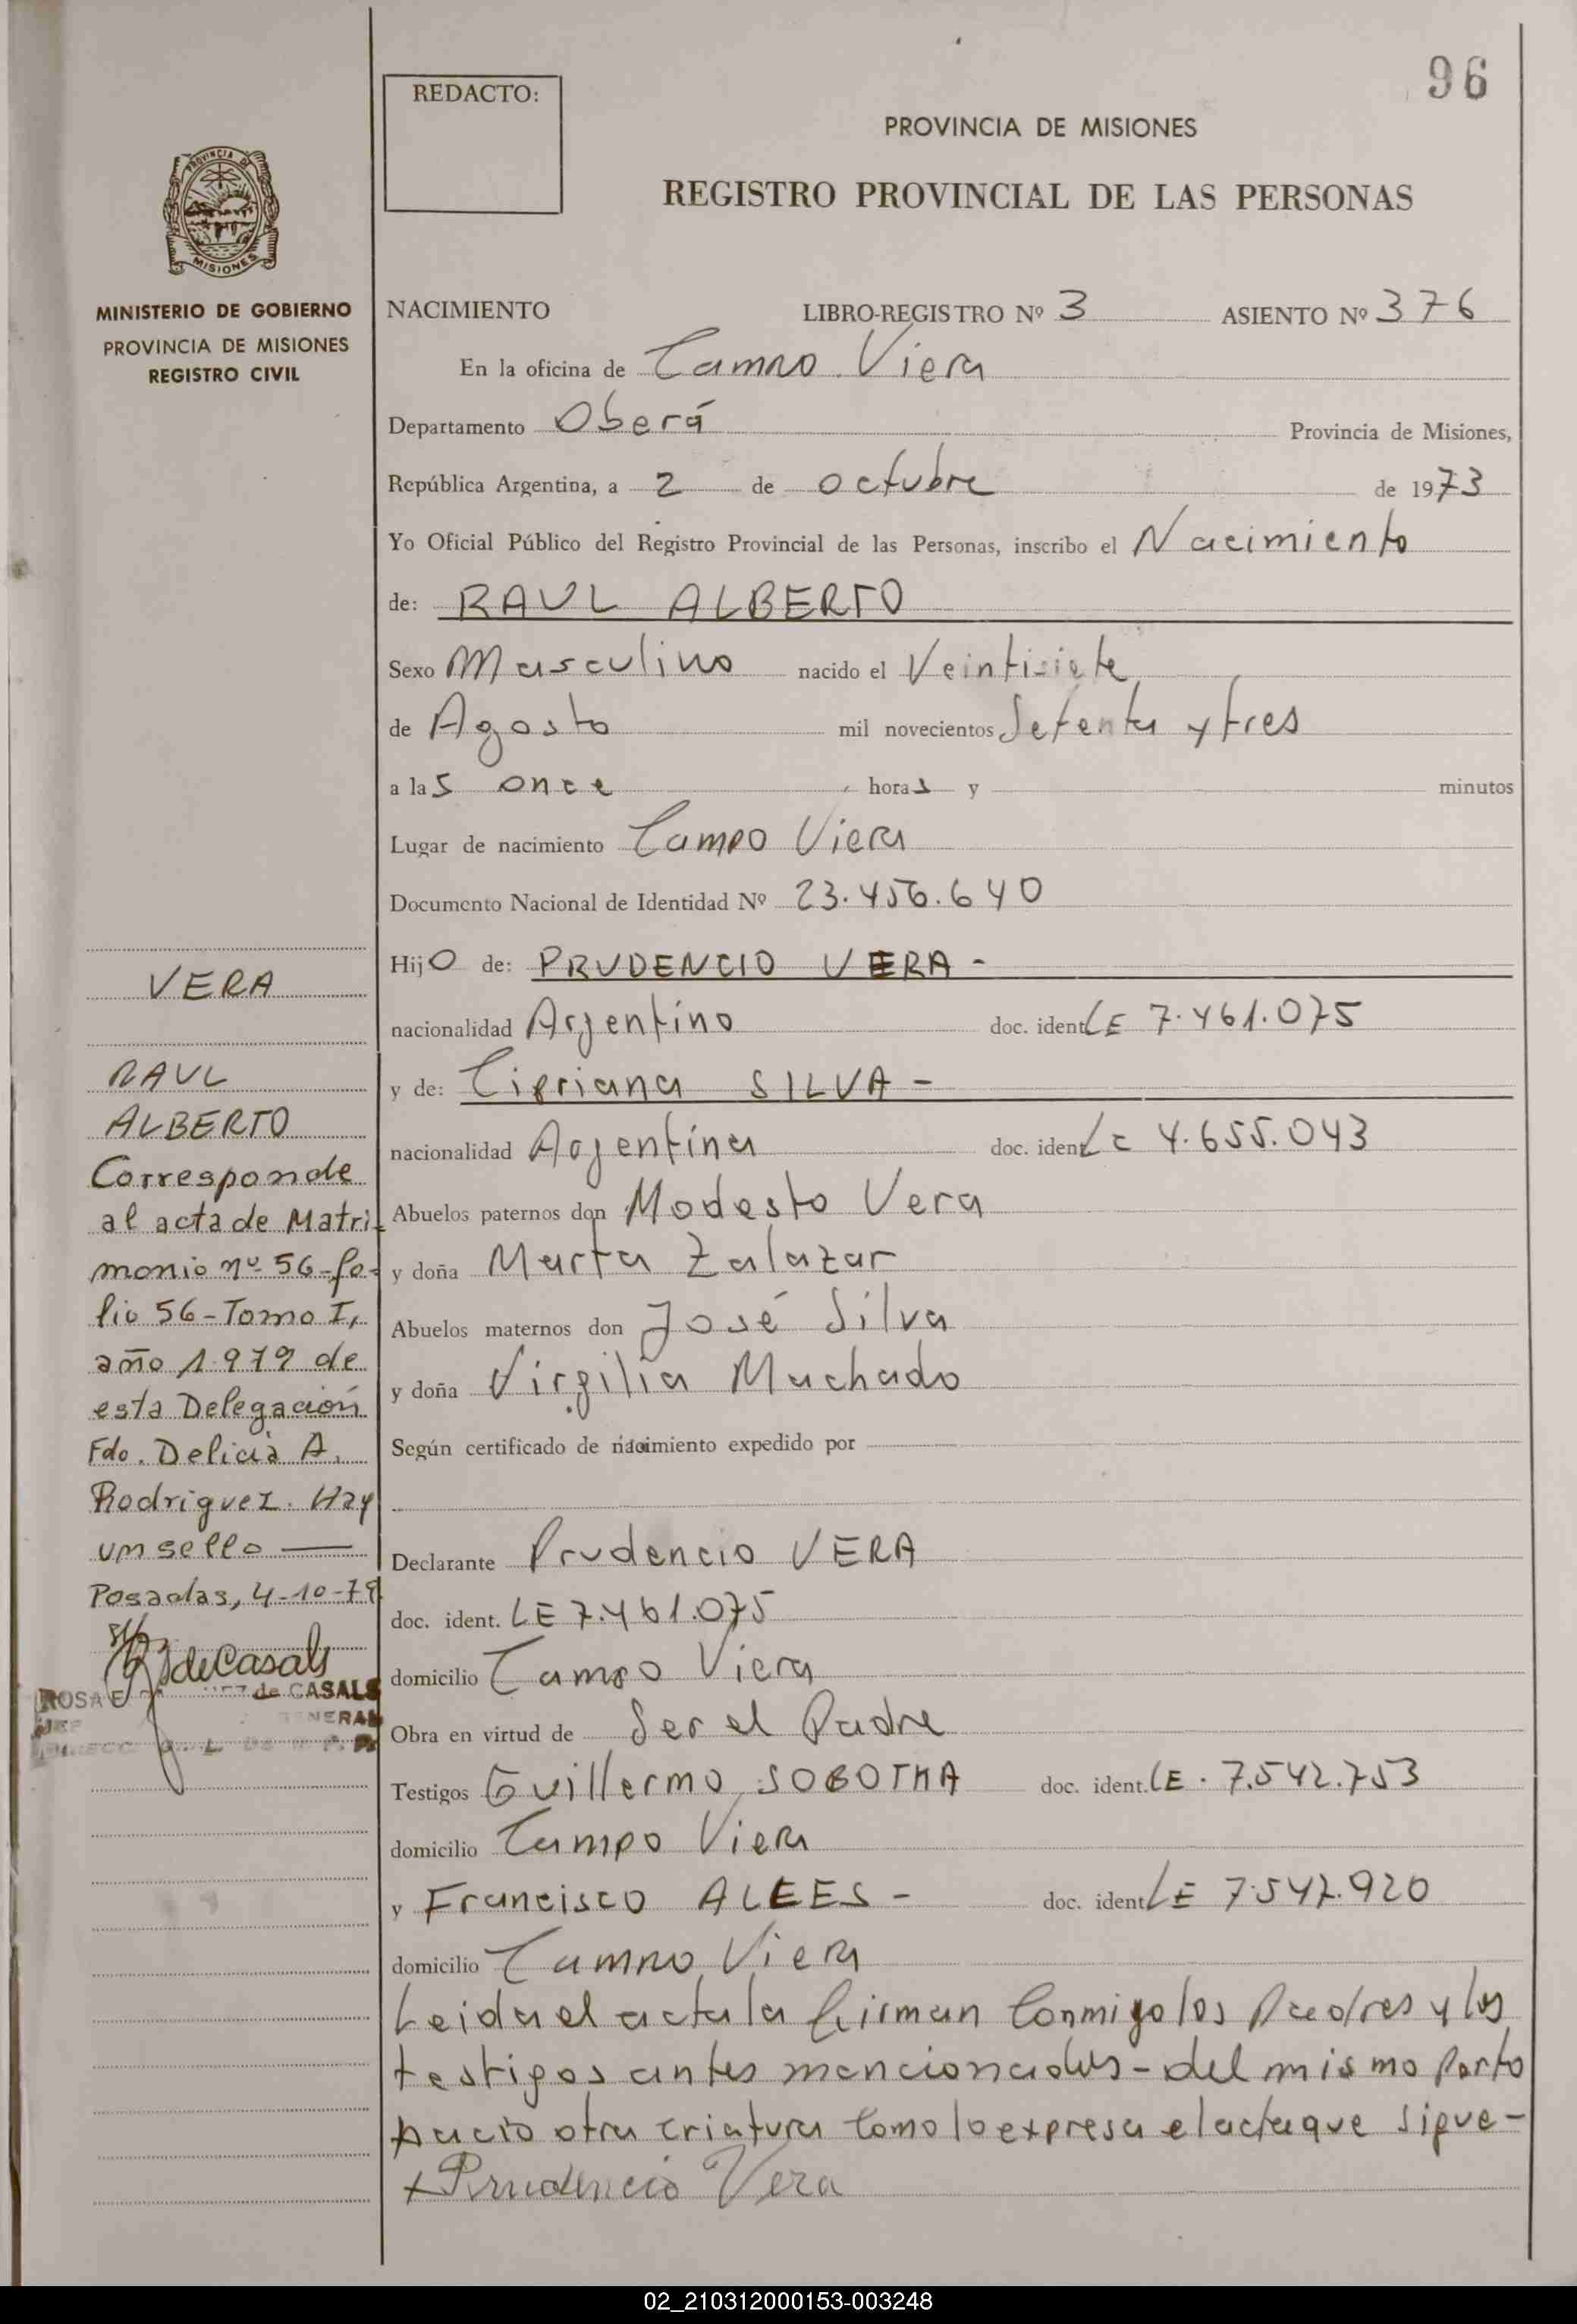 96
REDACTO:
PROVINCIA DE MISIONES
REGISTRO PROVINCIAL DE LAS PERSONAS
PROVINCIA DE
MISIONES
MINISTERIO DE GOBIERNO
PROVINCIA DE MISIONES
REGISTRO CIVIL
NACIMIENTO LIBRO-REGISTRO Nº 3 ASIENTO Nº 376
En la oficina de Campo Viera
Departamento Oberá Provincia de Misiones,
República Argentina, a 2 de octubre de 1973
Yo Oficial Público del Registro Provincial de las Personas, inscribo el Nacimiento
de: RAUL ALBERTO
Sexo Masculino nacido el Veintisiete
de Agosto mil novecientos Setenta y tres
a las once horas y minutos
Lugar de nacimiento Campo Viera
Documento Nacional de Identidad Nº 23.456.640
Hijo de: PRUDENCIO VERA -
nacionalidad Argentino doc. ident LE 7.461.075
y de: Cipriana SILVA -
nacionalidad Argentina doc. ident LC 4.655.043
Abuelos paternos don Modesto Vera
y doña Marta Zalazar
Abuelos maternos don José Silva
y doña Virgilia Machado
Según certificado de nacimiento expedido por
Declarante Prudencio VERA
doc. ident. LE 7.461.075
domicilio Campo Viera
Obra en virtud de Ser el Padre
Testigos Guillermo SOBOTKA doc. ident. LE. 7.542.753
domicilio Campo Viera
y Francisco doc. ident LE
domicilio Campo Viera
Leida el acta la firman Conmigo los Padres y los
testigos antes mencionados - del mismo Parto
nacio otra criatura Como lo expresa el acta que sigue -
x Prudencio Vera
VERA
RAUL
ALBERTO
Corresponde
al acta de Matri-
monio nº 56 - fo-
lio 56 - Tomo I,
año 1.979 de
esta Delegación
Fdo. Delicia A.
Rodriguez. Hay
un sello
Posadas, 4-10-79
de Casals
ROSA E de CASALS
02_210312000153-003248